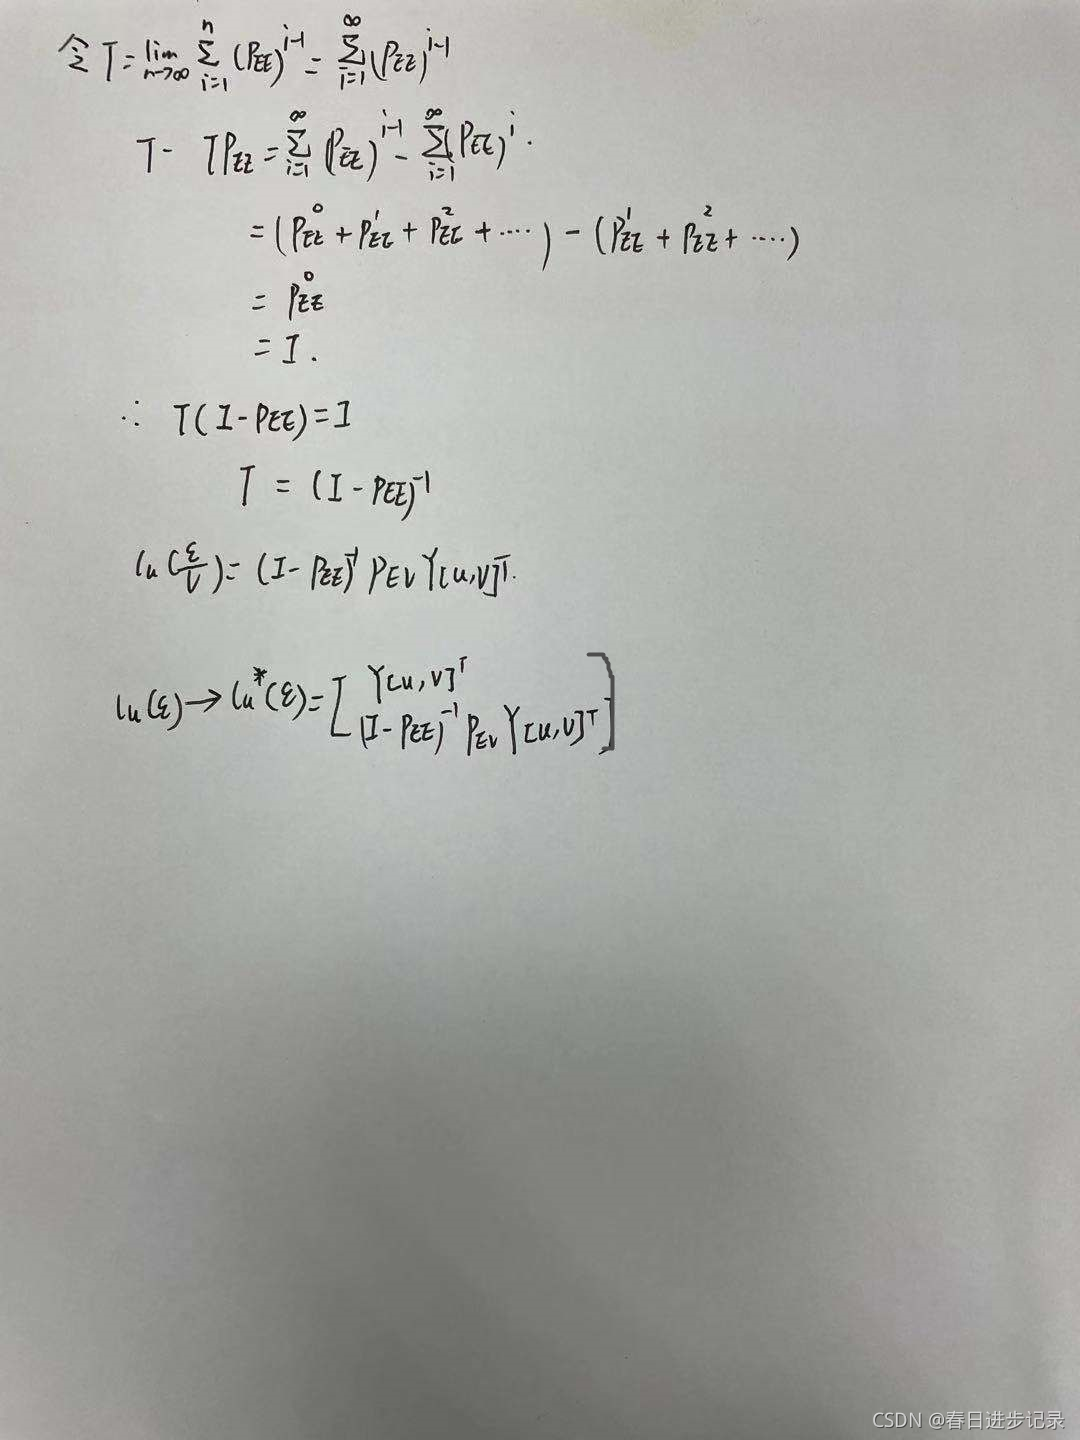 令 T = lim n→∞ Σ i=1 n (PEE)^i-1 = Σ i=1 ∞ (PEE)^i-1
T - TPEE = Σ i=1 ∞ (PEE)^i-1 - Σ i=1 ∞ (PEE)^i.
= (PEE^0 + PEE^1 + PEE^2 + ····) - (PEE^1 + PEE^2 + ····)
= PEE^0
= I.
∴ T(I - PEE) = I
T = (I - PEE)^-1
lu(ε/V) = (I - PEE)^-1 PEV Y[u,V]^T.
lu(ε) → lu*(ε) = [ Y[u,V]^T
(I - PEE)^-1 PEV Y[u,V]^T ]
CSDN @春日进步记录